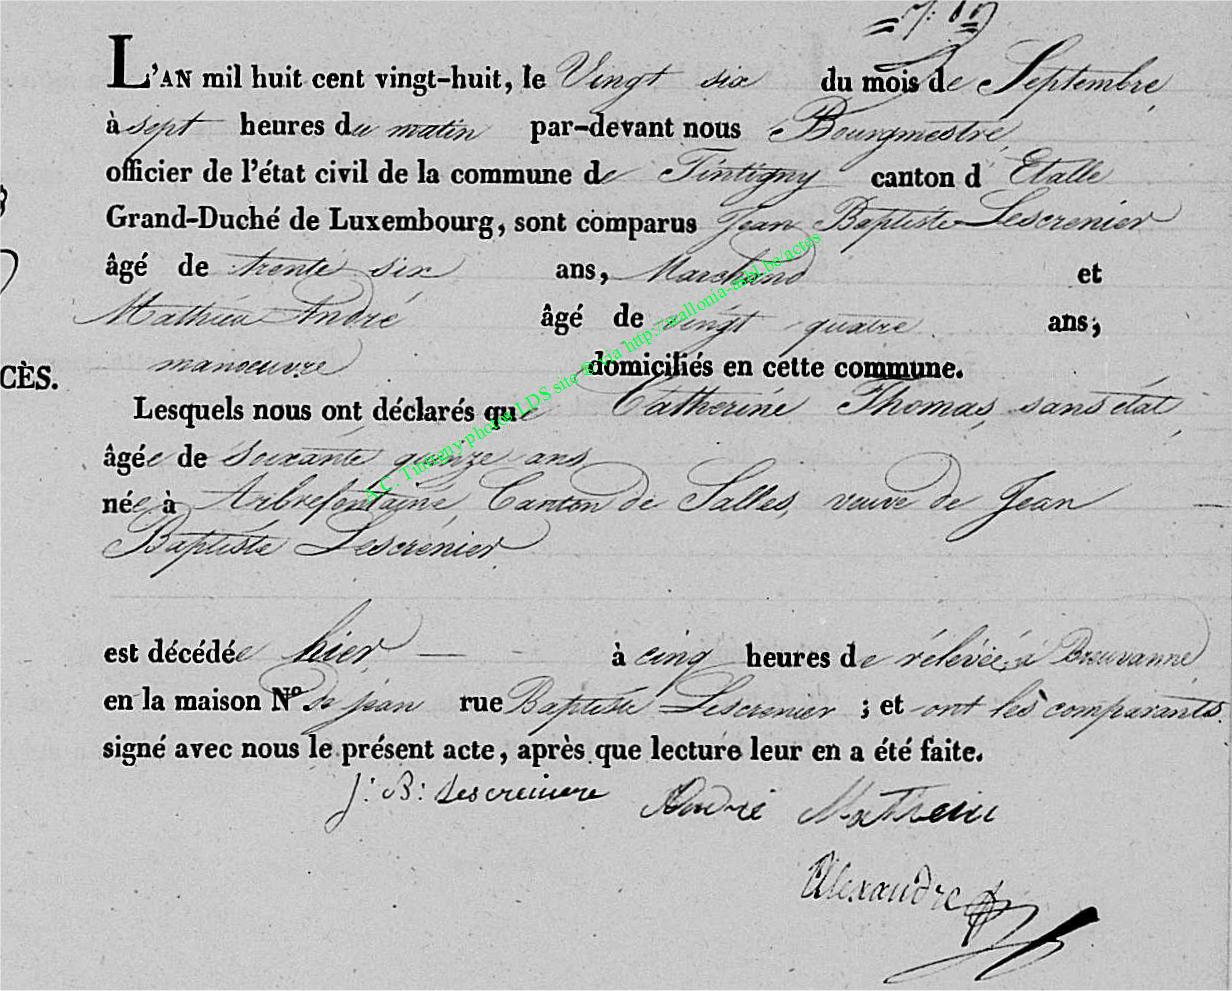 L'AN mil huit cent vingt-huit, le Vingt six du mois de Septembre,
à sept heures du matin par-devant nous Bourgmestre,
officier de l'état civil de la commune de Tintigny canton d'Etalle
Grand-Duché de Luxembourg, sont comparus Jean Baptiste Lescrenier
âgé de trente six ans, Marchand et
Mathieu André âgé de vingt quatre ans,
manoeuvre domiciliés en cette commune.
CÈS.
Lesquels nous ont déclarés que Catherine Thomas, sans état,
âgée de soixante quinze ans
née à Arbrefontaine, Canton de Salles, veuve de Jean
Baptiste Lescrenier
est décédée hier à cinq heures de rélévée, à Breuvanne
en la maison Nº de jean rue Baptiste Lescrenier ; et ont les comparants
signé avec nous le présent acte, après que lecture leur en a été faite.
J: B: Lescreniere André Mathieu
Alexandre
A.C. Tintigny photos LDS site http://wallonia-asbl.be/actes